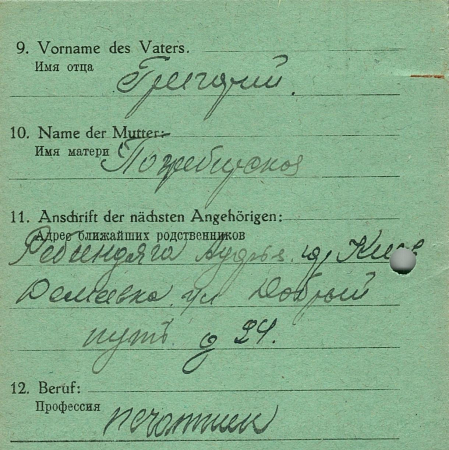 9. Vorname des Vaters.
Имя отца
Григорий.
10. Name der Mutter:
Имя матери
Погребиская
11. Anschrift der nächsten Angehörigen:
Адрес ближайших родственников
г. Киев
Демеевка ул Добрый
путь д 24.
12. Beruf:
Профессия
печатник